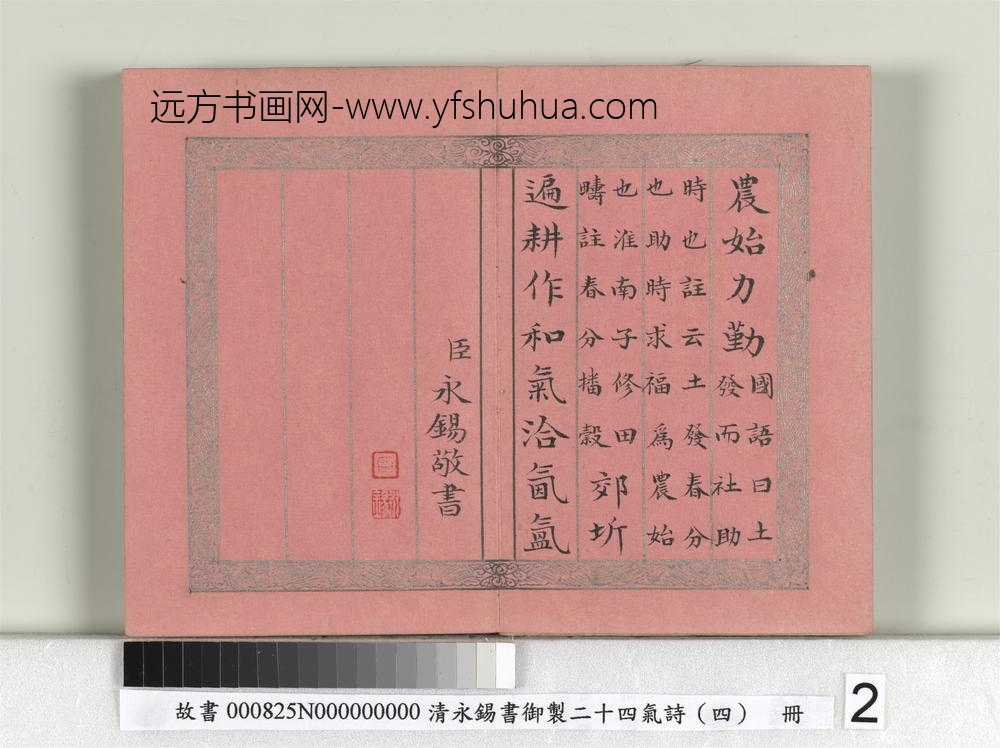 远方书画网-www.yfshuhua.com
農始力勤國語曰土
發而社助
時也註云土發春分
也助時求福爲農始
也淮南子修田
疇註春分播穀
郊圻
遍耕作和氣洽氤氳
臣永錫敬書
臣
永錫
故書 000825N000000000 清永錫書御製二十四氣詩（四） 冊
2